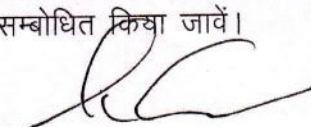 सम्बोधित किया जावें।